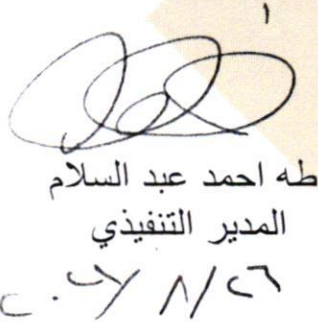 طه احمد عبد السلام
المدير التنفيذي
٢٦/٨/